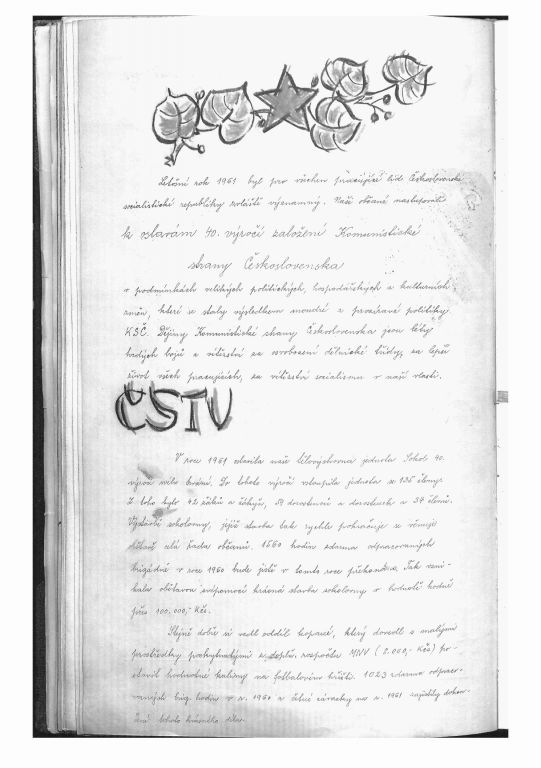 Letošní rok 1961 byl pro všechen pracující lid Československé
socialistické republiky zvláště významný. Naši občané nastupovali
k oslavám 40. výročí založení Komunistické
strany Československa
v podmínkách velikých politických, hospodářských a kulturních
změn, které se staly výsledkem moudré a prozíravé politiky
KSČ. Dějiny Komunistické strany Československa jsou léty
tvrdých bojů a vítězství za osvobození dělnické třídy, za lepší
život všech pracujících, za vítězství socialismu v naší vlasti.
ČSTV
V roce 1961 slavila naše tělovýchovná jednota Sokol 40.
výročí svého trvání. Do tohoto výročí vstoupila jednota se 135 členy.
Z toho bylo 42 žáků a žákyň, 59 dorostenců a dorostenek a 34 členů.
Výstavbě sokolovny, jejíž stavba tak rychle pokračuje se věnuje
celá řada občanů. 1560 hodin zdarma odpracovaných
brigádně v roce 1960 bude jistě v tomto roce překonáno. Tak vzni-
kala obětavou svépomocí krásná stavba sokolovny v hodnotě hodně
přes 100.000,- Kčs.
Stejně dobře si vedl oddíl kopané, který dovedl s malými
prostředky poskytnutými z rozpočtu MNV (2.000,- Kčs) po-
stavit hodnotné kabiny na fotbalovém hřišti. 1023 zdarma odprac-
vaných brig. hodin v r. 1960 a četné závazky na r. 1961 zajistily dokon-
čení tohoto krásného díla.